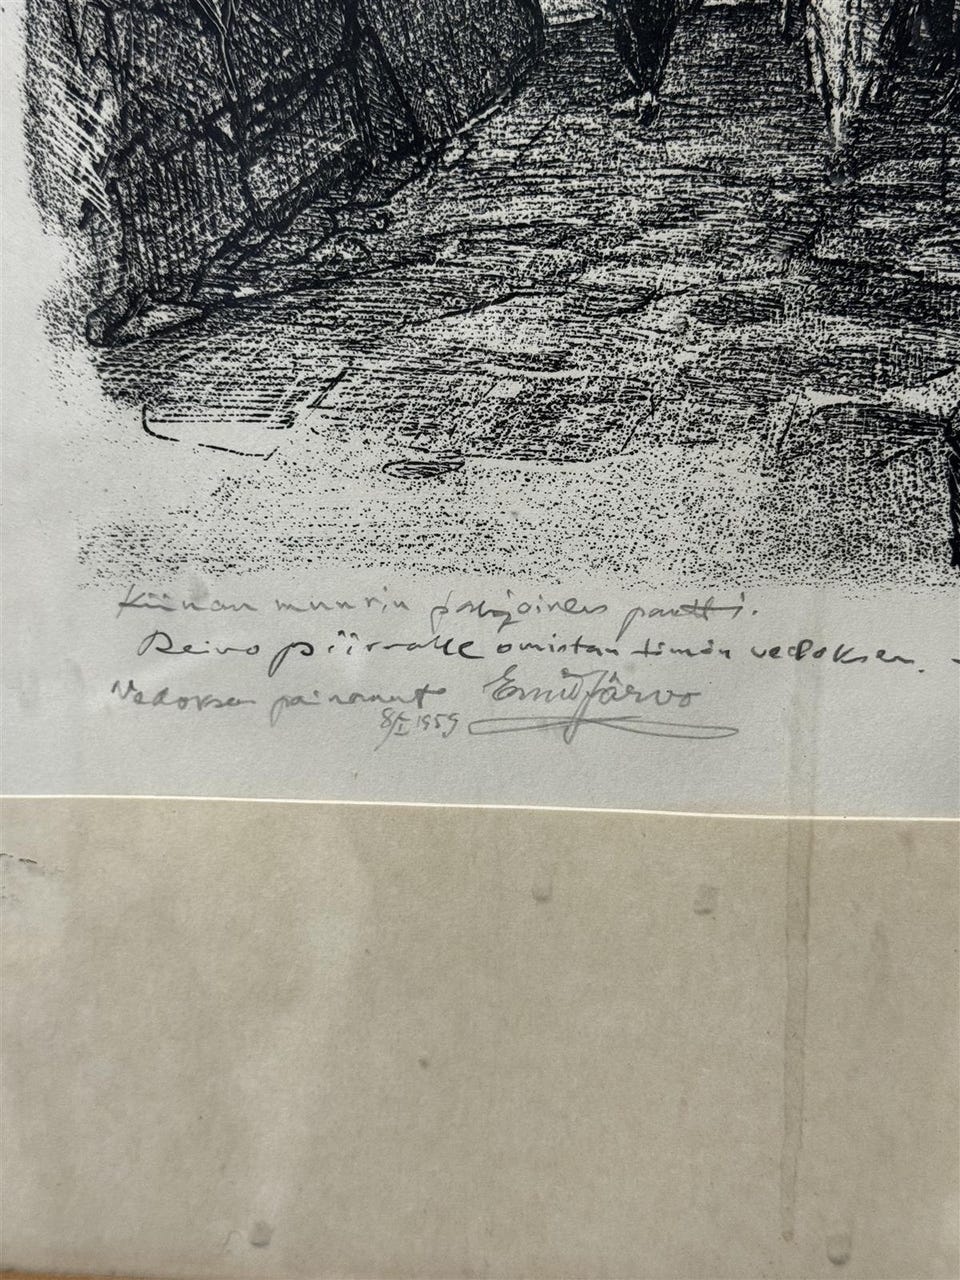 Kiinan muurin pohjoinen portti.
Reino piirralle omistan tämän vedoksen. -
Vedoksen painanut Emil Järvo
8/I 1959